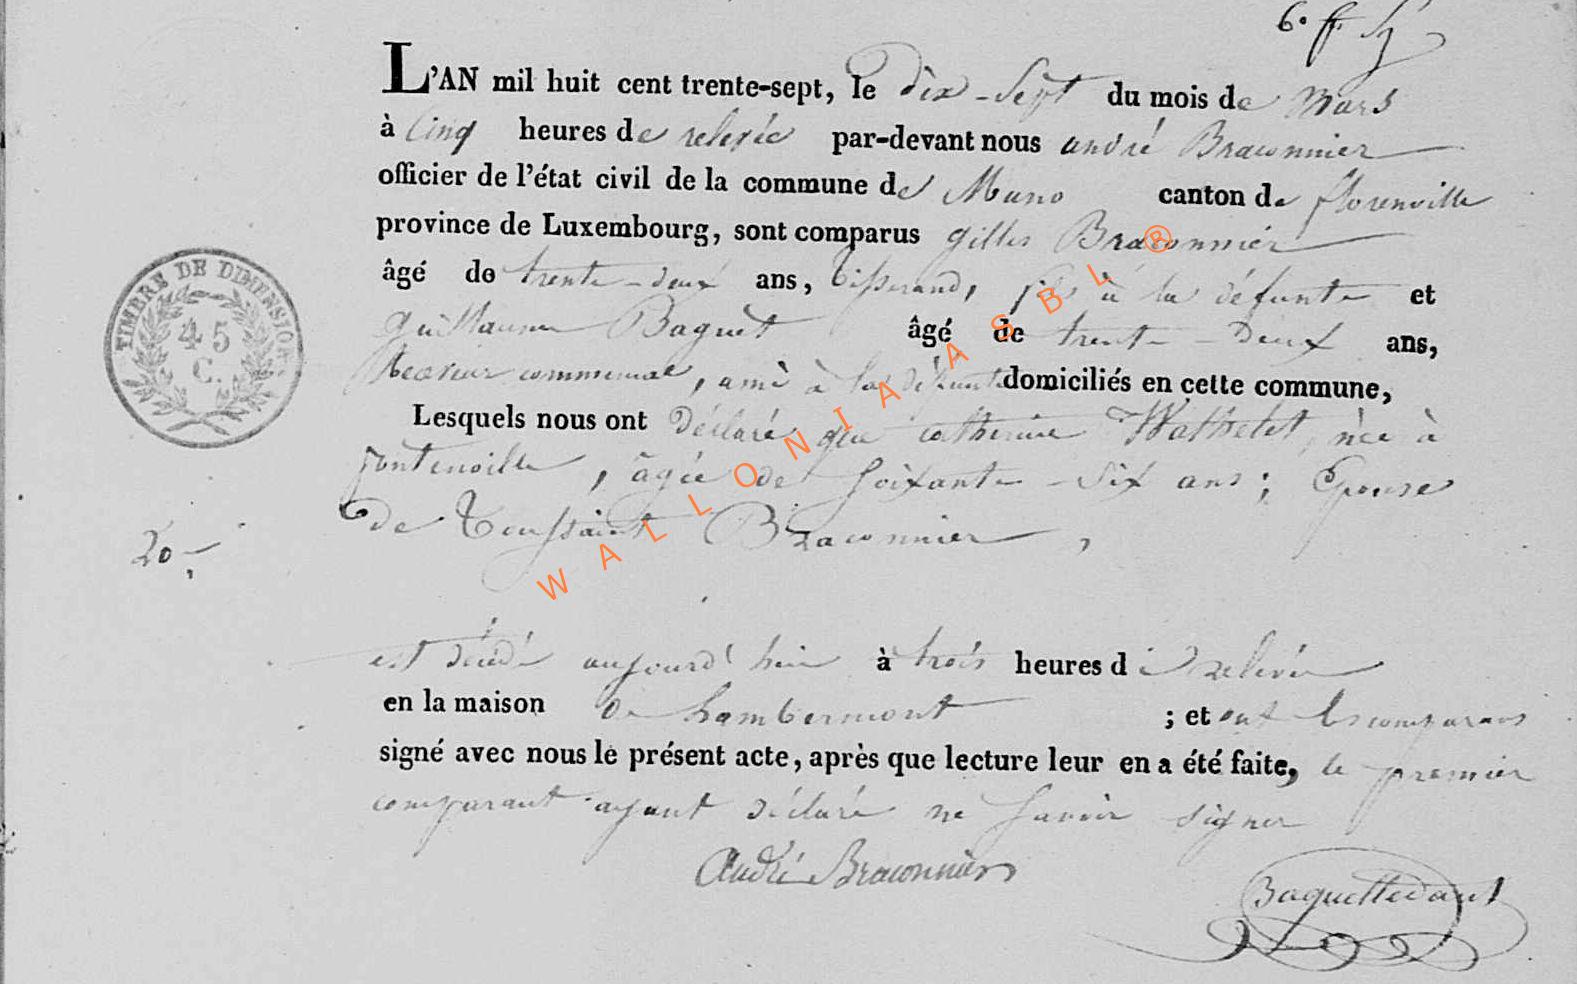 L'AN mil huit cent trente-sept, le dix-sept du mois de Mars
à cinq heures de relevée par-devant nous andré Braconnier
officier de l'état civil de la commune de Muno canton de florenville
province de Luxembourg, sont comparus gilles Braconnier
âgé de trente-deux ans, tisserand, fils à la défunte et
guillaume Baquet âgé de trente-deux ans,
receveur communal, ami à la défunte domiciliés en cette commune,
Lesquels nous ont déclaré que catherine Wathelet, née à
fontenoille, âgée de soixante-six ans; Epouse
de Toussaint Braconnier,
20
est décédé aujourd'hui à trois heures de relevée
en la maison de Lambermont ; et ont les comparans
signé avec nous le présent acte, après que lecture leur en a été faite, le premier
comparant ayant déclaré ne savoir signer
André Braconnier
TIMBRE DE DIMENSION
45
C.
WALLONIA ASBL ®